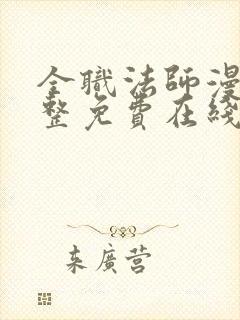 全職法師漫
整免費在綫
来廣营